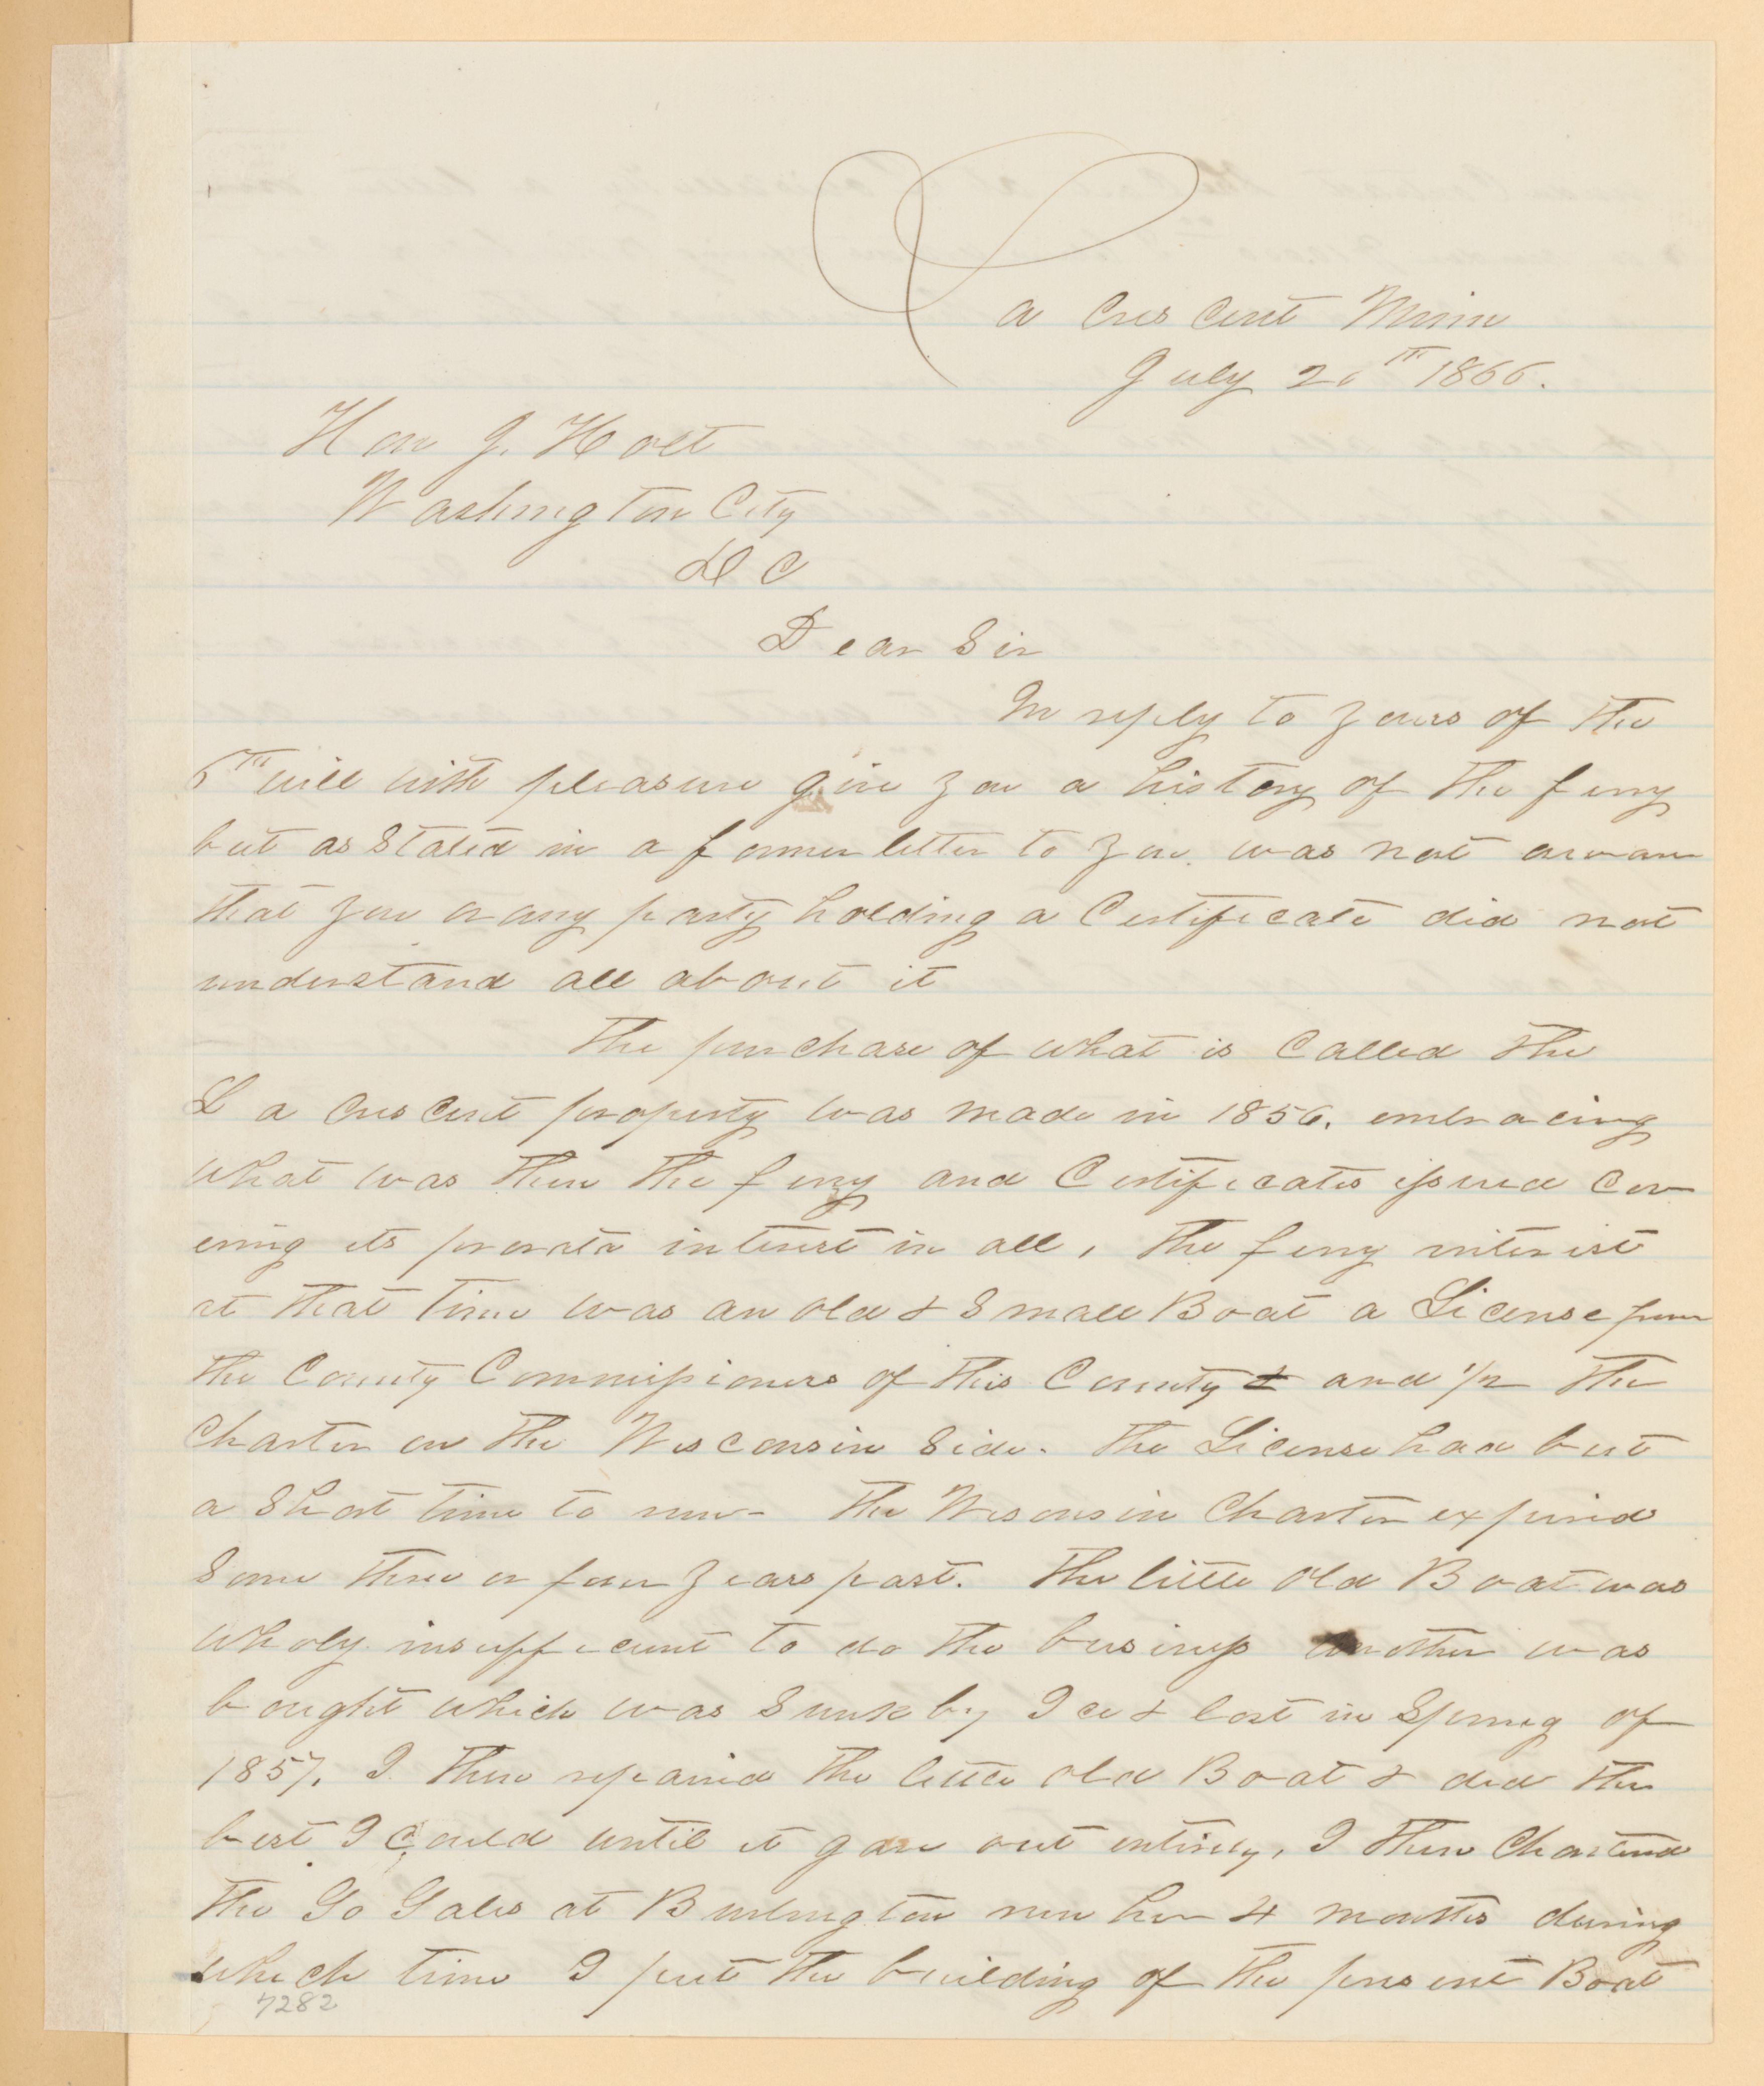 La Crescent Minn
July 20th 1866.
Hon J. Holt
Washington City
D C
Dear Sir
In reply to yours of the
6th will with pleasure give you a history of the ferry
but as Stated in a former letter to you was not aware
that you or any party holding a Certificate did not
understand all about it
The purchase of what is Called the
La Crescent property was made in 1856. embracing
what was then the ferry and Certificates issued Cov
ering its prorata interest in all, The ferry interest
at that time was an old & Small Boat a License from
the County Commissioners of this County & and 1/2 the
Charter on the Wisconsin Side. The License had but
a Short time to run - The Wisconsin Charter expired
Some three or four years past. The little old Boat was
wholy insufficient to do the business another was
bought which was Sunk by Ice & lost in Spring of
1857. I then repaired the little old Boat & did the
best I Could until it gave out entirely, I then Chartered
the at Burlington run her 4 months during
which time I put the building of the present Boat
7282